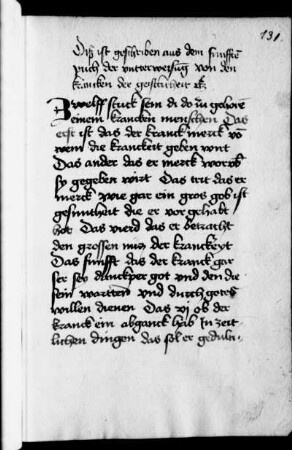 131.
Ditz ist geschriben aus dem funfften
puch der unterweisūg von den
krancken der geistlicheit ꝛc.
Zwelff stuck sein di do zu gehorē
einem krancken menschen Das
erst ist das der kranck merck vō
wem die kranckeit geben wirt
Das ander das er merck worūb
sy gegeben wirt Das trit das er
merck wie gar ein gros gob ist
gesuntheit die er vor gehabt
hot Das vierd das er betracht
den grossen nutz der kranckeyt
Das funfft das der kranck gar
ser sey danckper got vnd den die
sein warttē vnd durch gotes
willen dienen Das vj ob der
kranck ein abganck hab in zeit-
lichen dingen das sol er gedult-